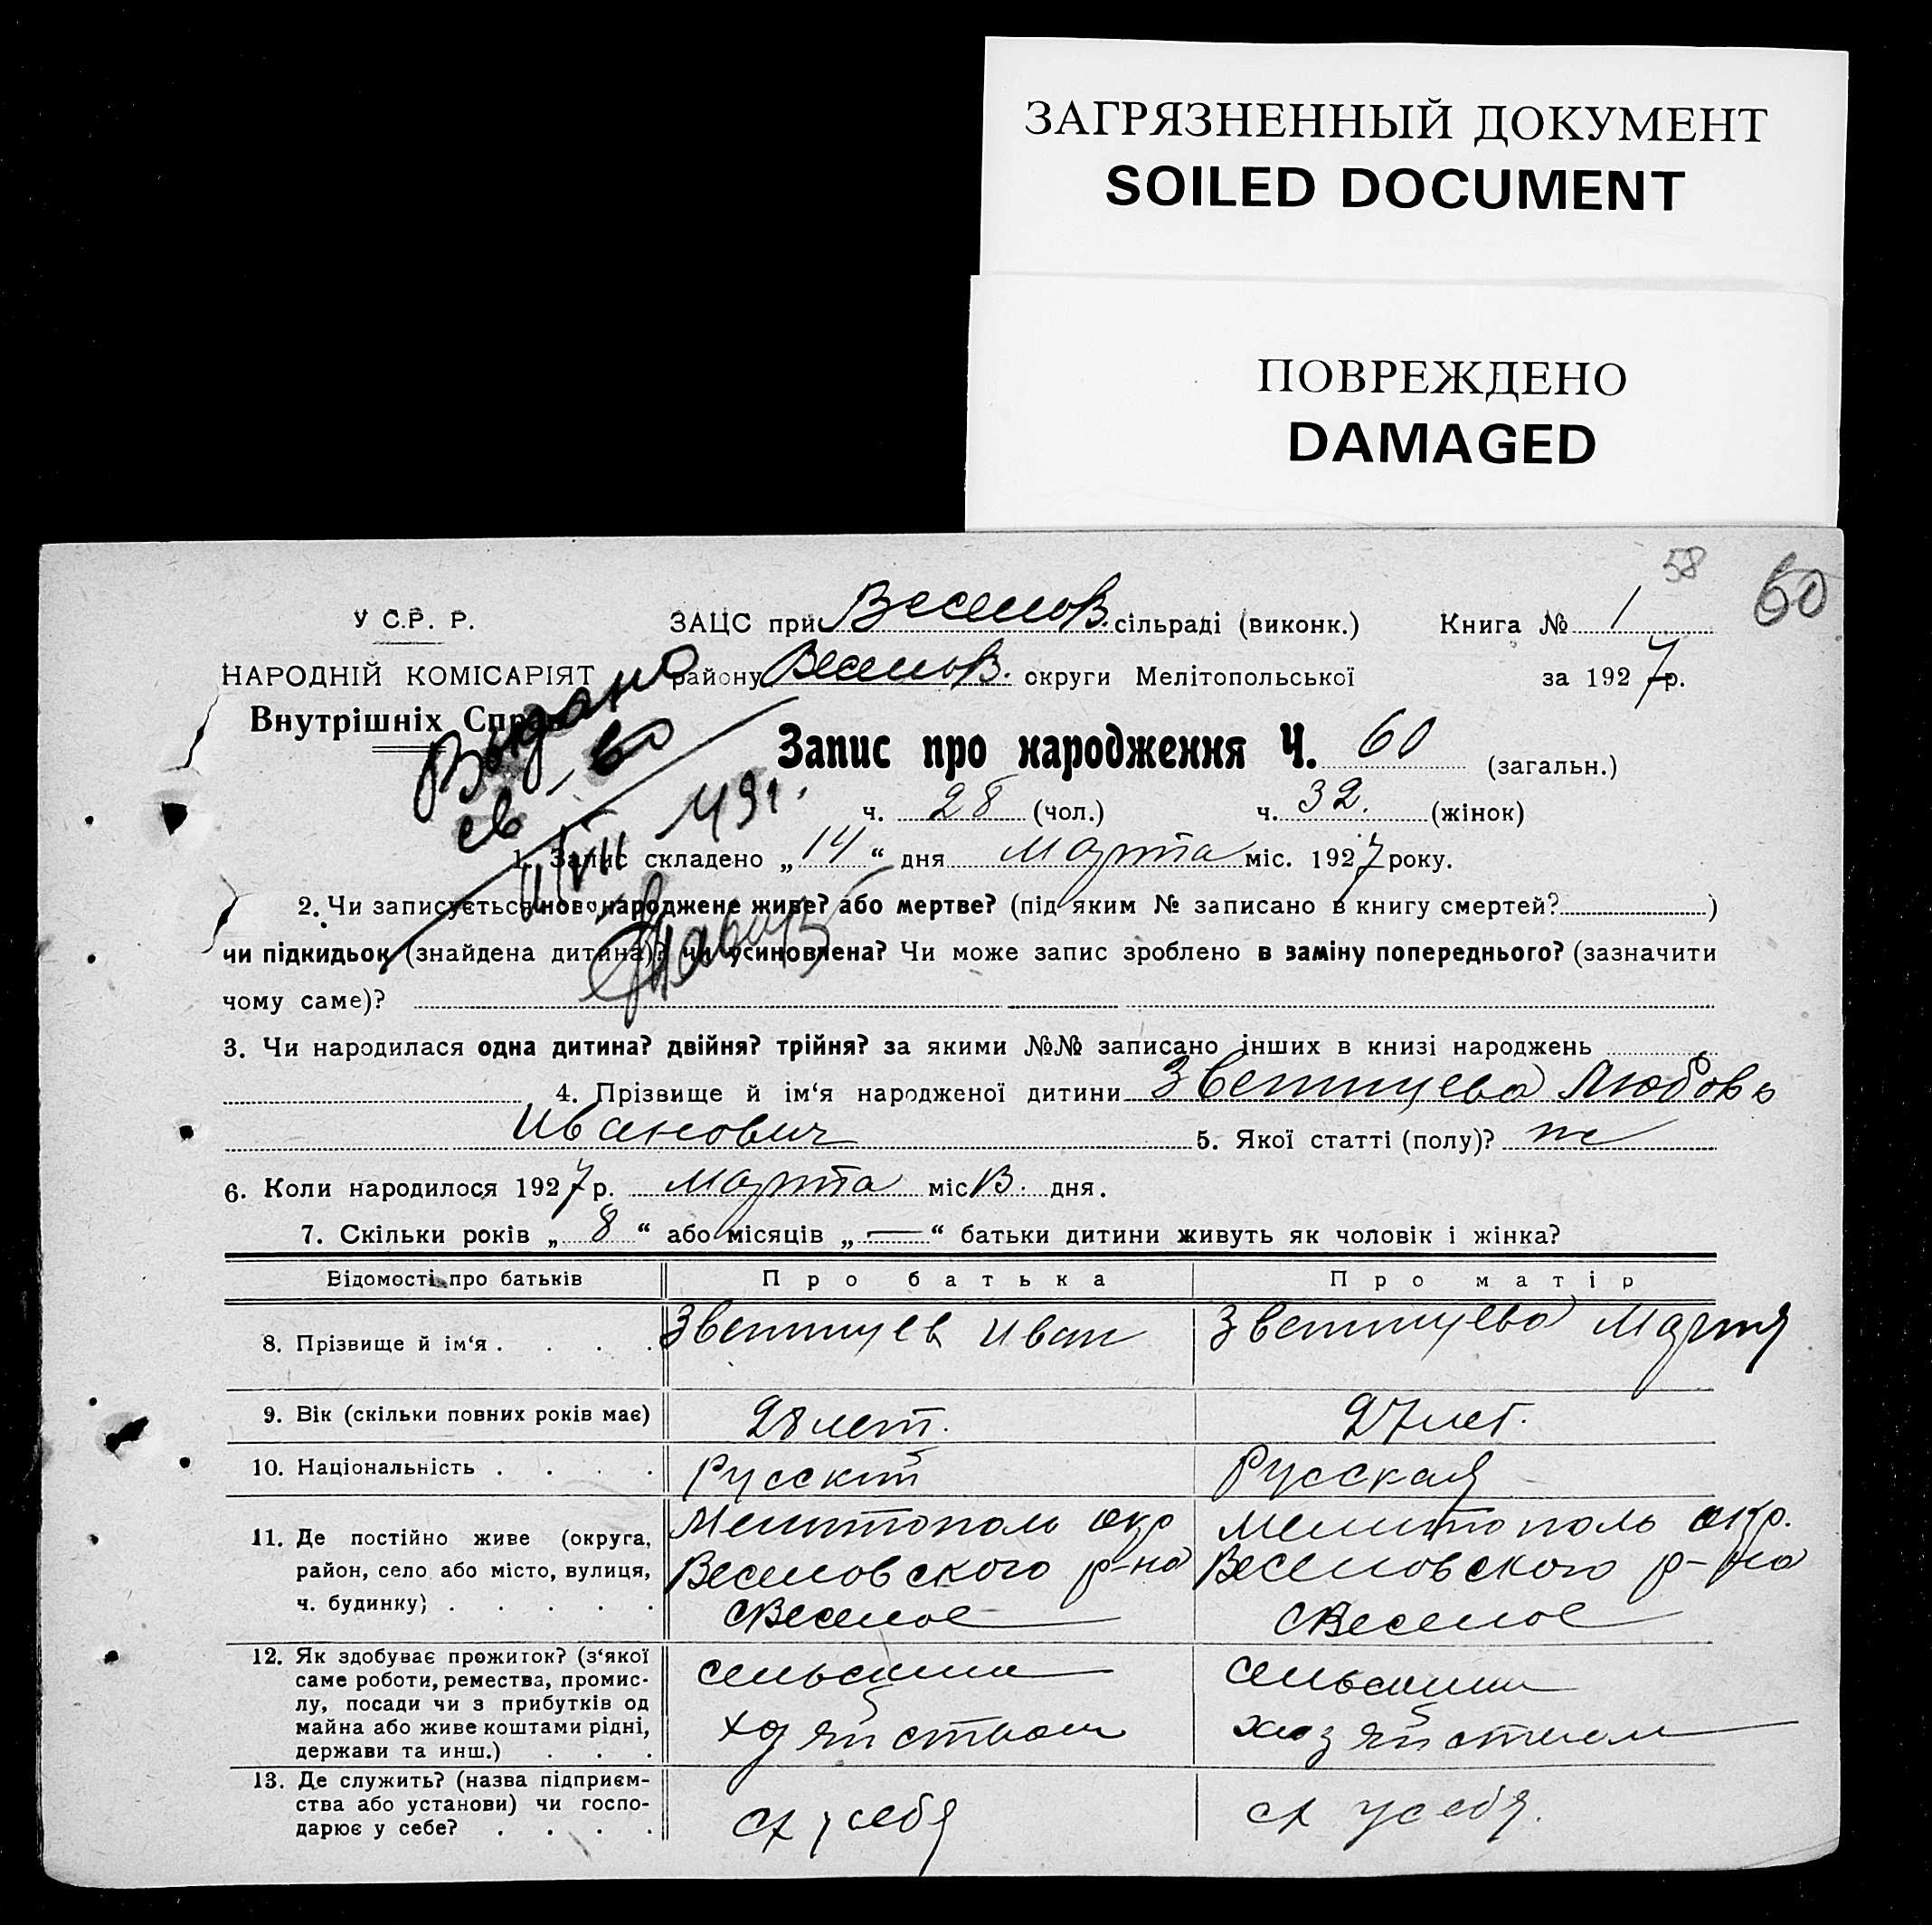 ЗАГРЯЗНЕННЫЙ ДОКУМЕНТ
SOILED DOCUMENT
ПОВРЕЖДЕНО
DAMAGED
58
60
У С.Р. Р.
ЗАЦС при Веселов. сільраді (виконк.) Книга № 1
НАРОДНІЙ КОМІСАРІЯТ
району Веселов. округи Мелітопольської за 1927 р.
Внутрішніх Справ
Выдано
св-во
Запис про народження Ч. 60 (загальн.)
ч. 28 (чол.) ч. 32. (жінок)
1. Запис складено „14“ дня Марта міс. 1927 року.
2. Чи записується новонароджене живе? або мертве? (під яким № записано в книгу смертей? )
чи підкидьок (знайдена дитина)? чи усиновлена? Чи може запис зроблено в заміну попереднього? (зазначити
чому саме)?
3. Чи народилася одна дитина? двійня? трійня? за якими №№ записано інших в книзі народжень
4. Прізвище й ім‘я народженої дитини Любовь
Иванович 5. Якої статті (полу)? ж
6. Коли народилося 1927 р. Марта міс. дня.
7. Скільки років „8“ або місяців „—“ батьки дитини живуть як чоловік і жінка?
Відомості про батьків Про батька Про матір
8. Прізвище й ім‘я . . . . Иван
9. Вік (скільки повних років має) 28 лет. 27 лет.
10. Національність . . . . Русский Русская
11. Де постійно живе (округа, Мелитополь окр Мелитополь окр.
район, село або місто, вулиця, Веселовского р-на Веселовского р-на
ч. будинку) . . . . . с Веселое с Веселое
12. Як здобуває прожиток? (з‘якої
саме роботи, ремества, промис- сельским сельским
лу, посади чи з прибутків од
майна або живе коштами рідні, хозяйством
держави та инш.) . . .
13. Де служить? (назва підприєм-
ства або установи) чи госпо- у себя у себя.
дарює у себе? . . . .